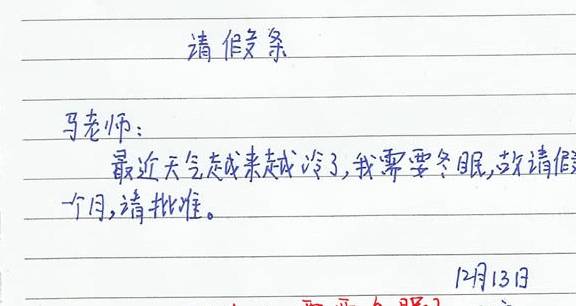 请假条
马老师:
最近天气越来越冷了,我需要冬眠,故请假
一个月,请批准。
12月13日